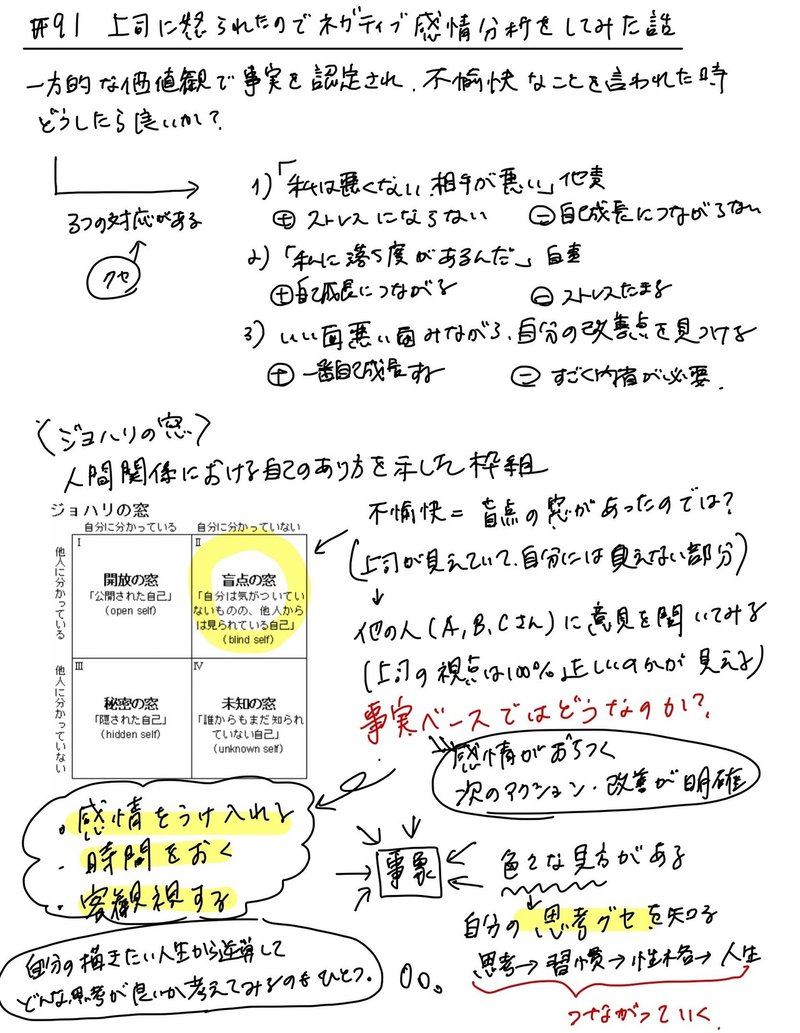 #91 上司に怒られたのでネガティブ感情分析をしてみた話
一方的な価値観で事実を認定され、不愉快なことを言われた時
どうしたら良いか？
3つの対応がある
クセ
1)「私は悪くない、相手が悪い」他責
⊕ストレスにならない ⊖自己成長につながらない
2)「私に落ち度があるんだ」自責
⊕自己成長につながる ⊖ストレスたまる
3) いい面悪い面みながら、自分の改善点を見つける
⊕一番自己成長する ⊖すごく内省が必要.
〈ジョハリの窓〉
人間関係における自己のあり方を示した枠組
ジョハリの窓
自分に分かっている 自分に分かっていない
他人に分かっている
I
開放の窓
「公開された自己」
(open self)
II
盲点の窓
「自分は気がついてい
ないものの、他人から
は見られている自己」
(blind self)
他人に分かっていない
III
秘密の窓
「隠された自己」
(hidden self)
IV
未知の窓
「誰からもまだ知られ
ていない自己」
(unknown self)
不愉快＝盲点の窓があったのでは？
(上司が見えていて、自分には見えない部分)
他の人(A,B,Cさん)に意見を聞いてみる
(上司の視点は100%正しいのかが見える)
事実ベースではどうなのか？
感情がおちつく
次のアクション・改善が明確
・感情をうけ入れる
・時間をおく
・客観視する
事象
色々な見方がある
自分の思考グセを知る
思考→習慣→性格→人生
つながっていく
自分の描きたい人生から逆算して
どんな思考が良いか考えてみるのもひとつ。